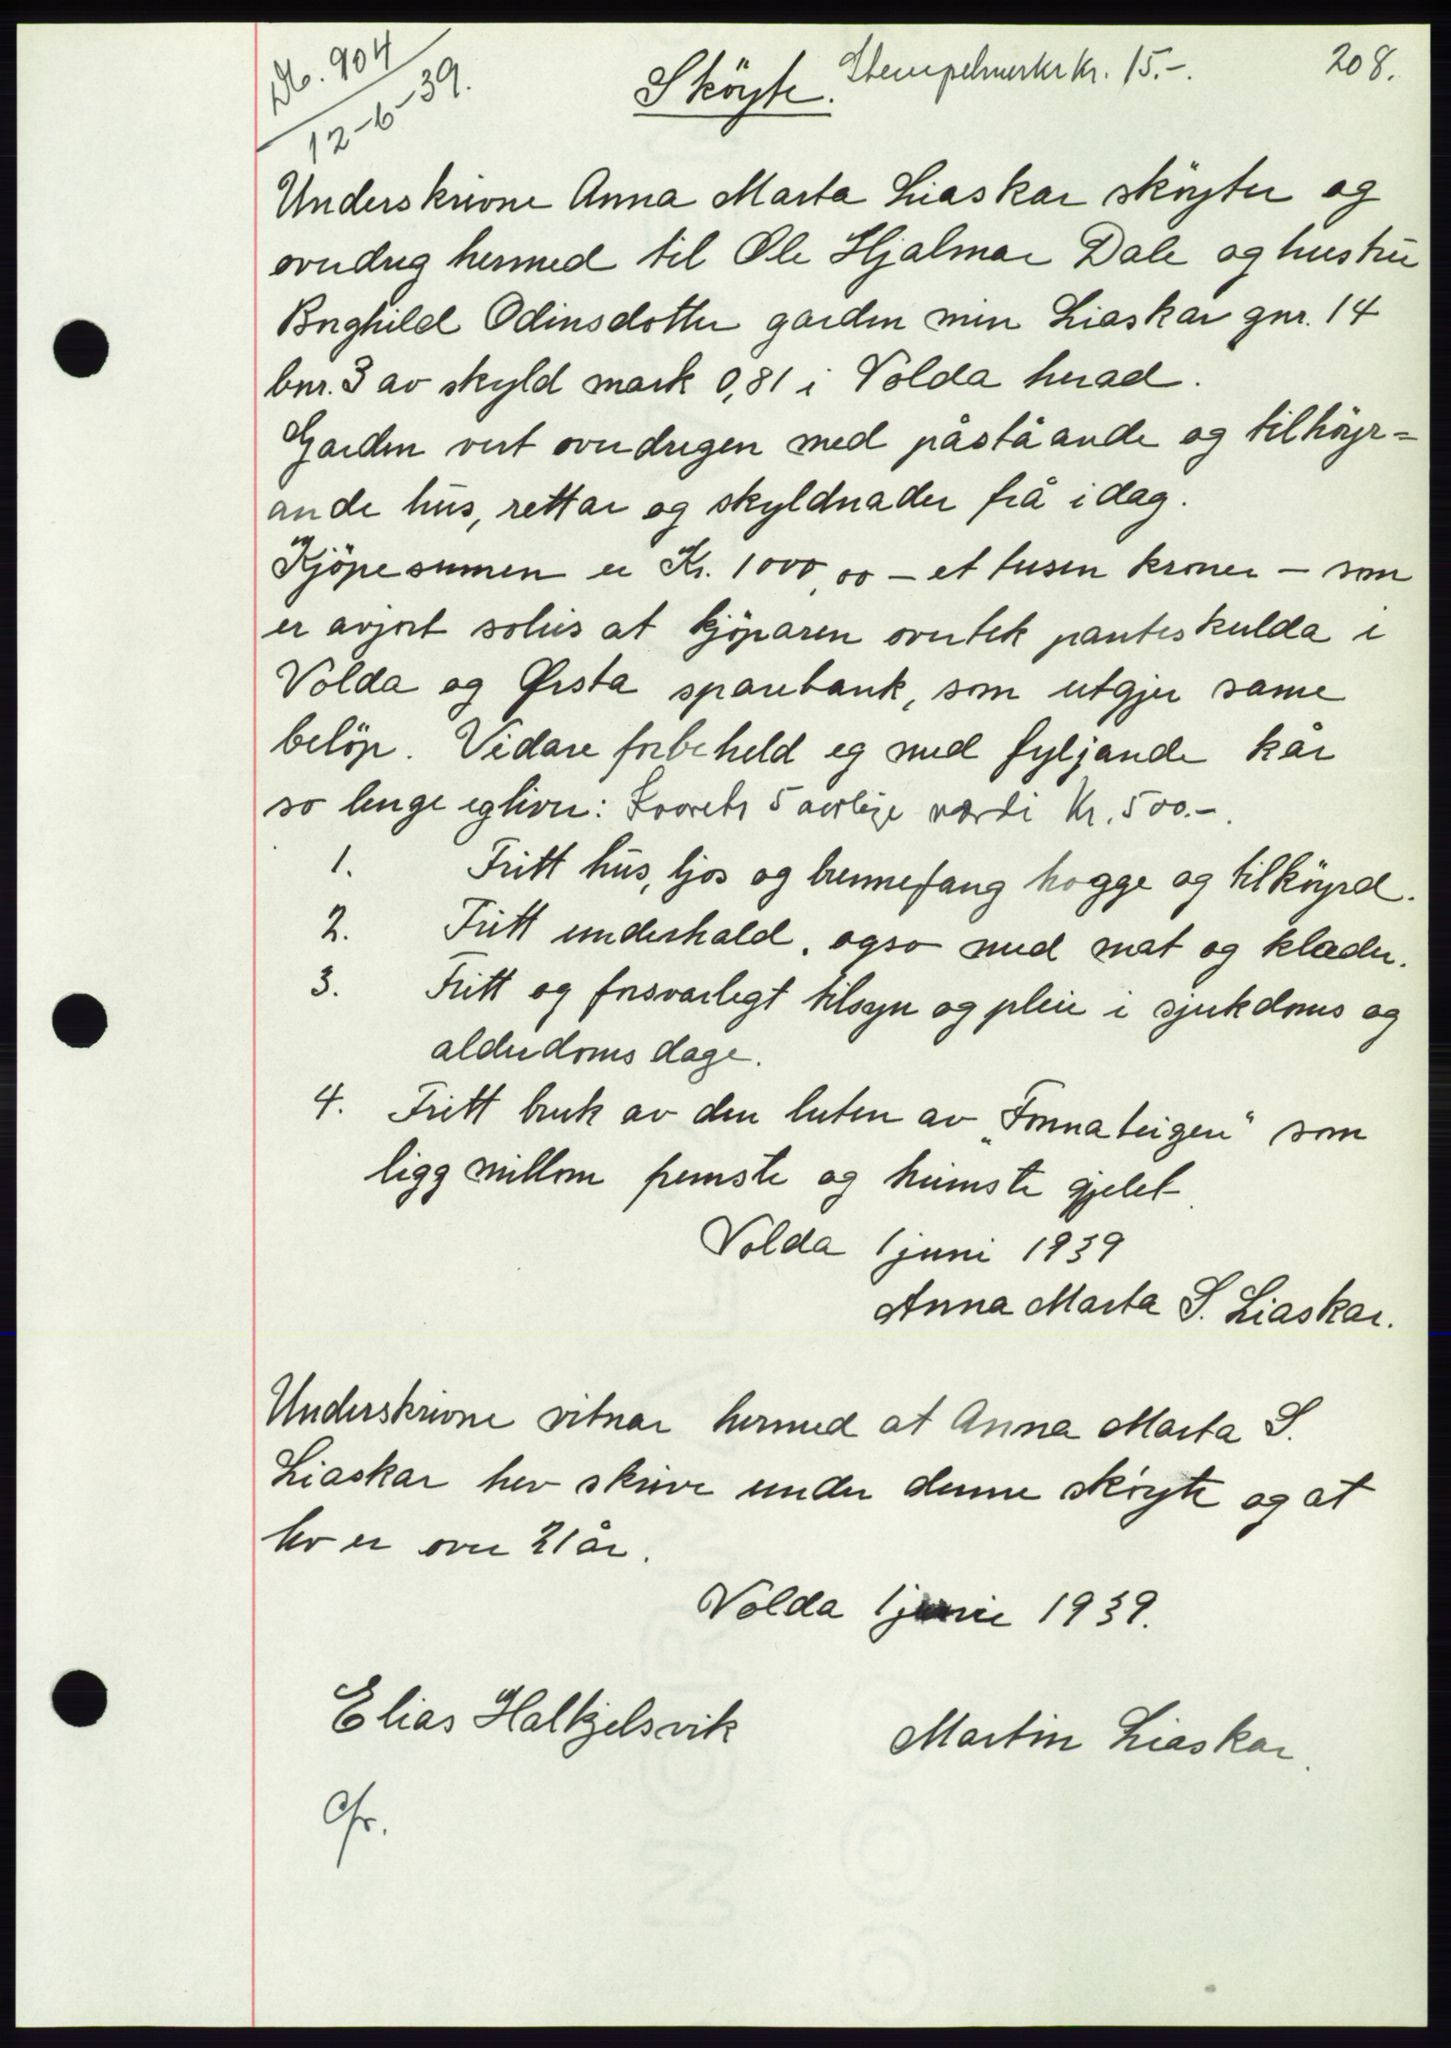 Db. 904
12-6-39.
Sköyte. Stempelmerker kr. 15.-. 208.
Underskrivne Anna Marta Liaskar sköyter og
overdreg hermed til Ole Hjalmar Dale og hustru
Borghild Odinsdotter garden min Liaskar gnr. 14
bnr. 3 av skyld mark 0,81 i Volda herad.
Garden vert overdregen med påståande og tilhöyr=
ande hus, rettar og skyldnader frå idag.
Kjöpesumen er Kr. 1000,00 - et tusen kroner - som
er avjort solris at kjöparen overtek panteskulda i
Volda og Ørsta sparebank, som utgjer same
belöp. Vidare forbeheld eg med fyljande kår
so lenge eg liver: Kaarets 5 aarlige verdi Kr. 500.-.
1. Fritt hus, ljos og brennefang hogge og tilköyrd.
2. Fritt underhald, ogso med mat og klæder.
3. Fritt og forsvarlegt tilsyn og pleie i sjukdoms og
alderdoms dage.
4. Fritt bruk av den luten av „Fonnateigen" som
ligg millom fremste og heimste gjelet.
Volda 1 juni 1939
Anna Marta S. Liaskar.
Underskrivne vitnar hermed at Anna Marta S.
Liaskar hev skrive under denne sköyte og at
ho er over 21 år.
Volda 1 juni 1939.
Elias Halkjelsvik Martin Liaskar.
Cfr.